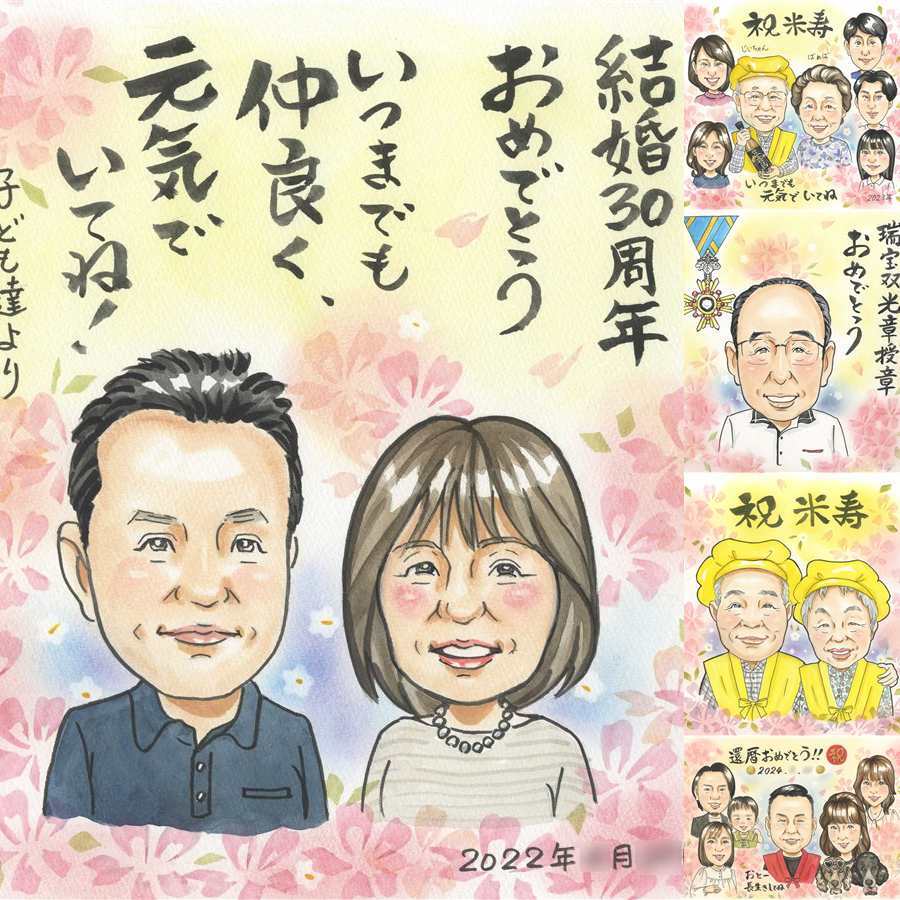 結婚30周年
おめでとう
いつまでも
仲良く、
元気で
いてね！
子ども達より
2022年
月
祝 米寿
じいちゃん
ばぁば
いつまでも
元気でいてね
2023年
瑞宝双光章授章
おめでとう
祝 米寿
還暦おめでとう!!
祝
2024.
おとー
長生きしてね